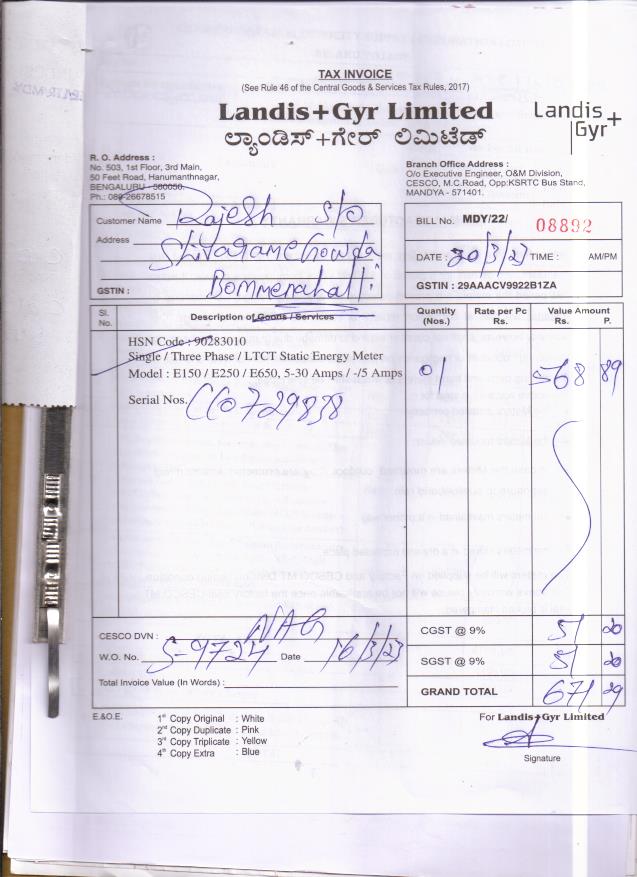 TAX INVOICE
(See Rule 46 of the Central Goods & Services Tax Rules, 2017)
Landis+Gyr Limited
ಲ್ಯಾಂಡಿಸ್+ಗೇರ್ ಲಿಮಿಟೆಡ್
Landis
Gyr+
R. O. Address :
No. 503, 1st Floor, 3rd Main,
50 Feet Road, Hanumanthnagar,
BENGALURU - 560050.
Ph.: 080-26678515
Branch Office Address :
O/o Executive Engineer, O&M Division,
CESCO, M.C.Road, Opp:KSRTC Bus Stand,
MANDYA - 571401.
Customer Name Rajesh S/o
Address Shivaramegowda
GSTIN : Bommenahatti
BILL No. MDY/22/ 08892
DATE : 30/3/23 TIME : AM/PM
GSTIN : 29AAACV9922B1ZA
Sl. No. Description of Goods / Services Quantity (Nos.) Rate per Pc Rs. Value Amount Rs. P.
HSN Code : 90283010
Single / Three Phase / LTCT Static Energy Meter
Model : E150 / E250 / E650, 5-30 Amps / -/5 Amps 01 568 89
Serial Nos. CC0729838
CESCO DVN : NAG
W.O. No. S-9724 Date 16/3/23
Total Invoice Value (In Words) :
CGST @ 9% 51 20
SGST @ 9% 51 20
GRAND TOTAL 671 29
E.&O.E.
1st Copy Original : White
2nd Copy Duplicate : Pink
3rd Copy Triplicate : Yellow
4th Copy Extra : Blue
For Landis+Gyr Limited
Signature